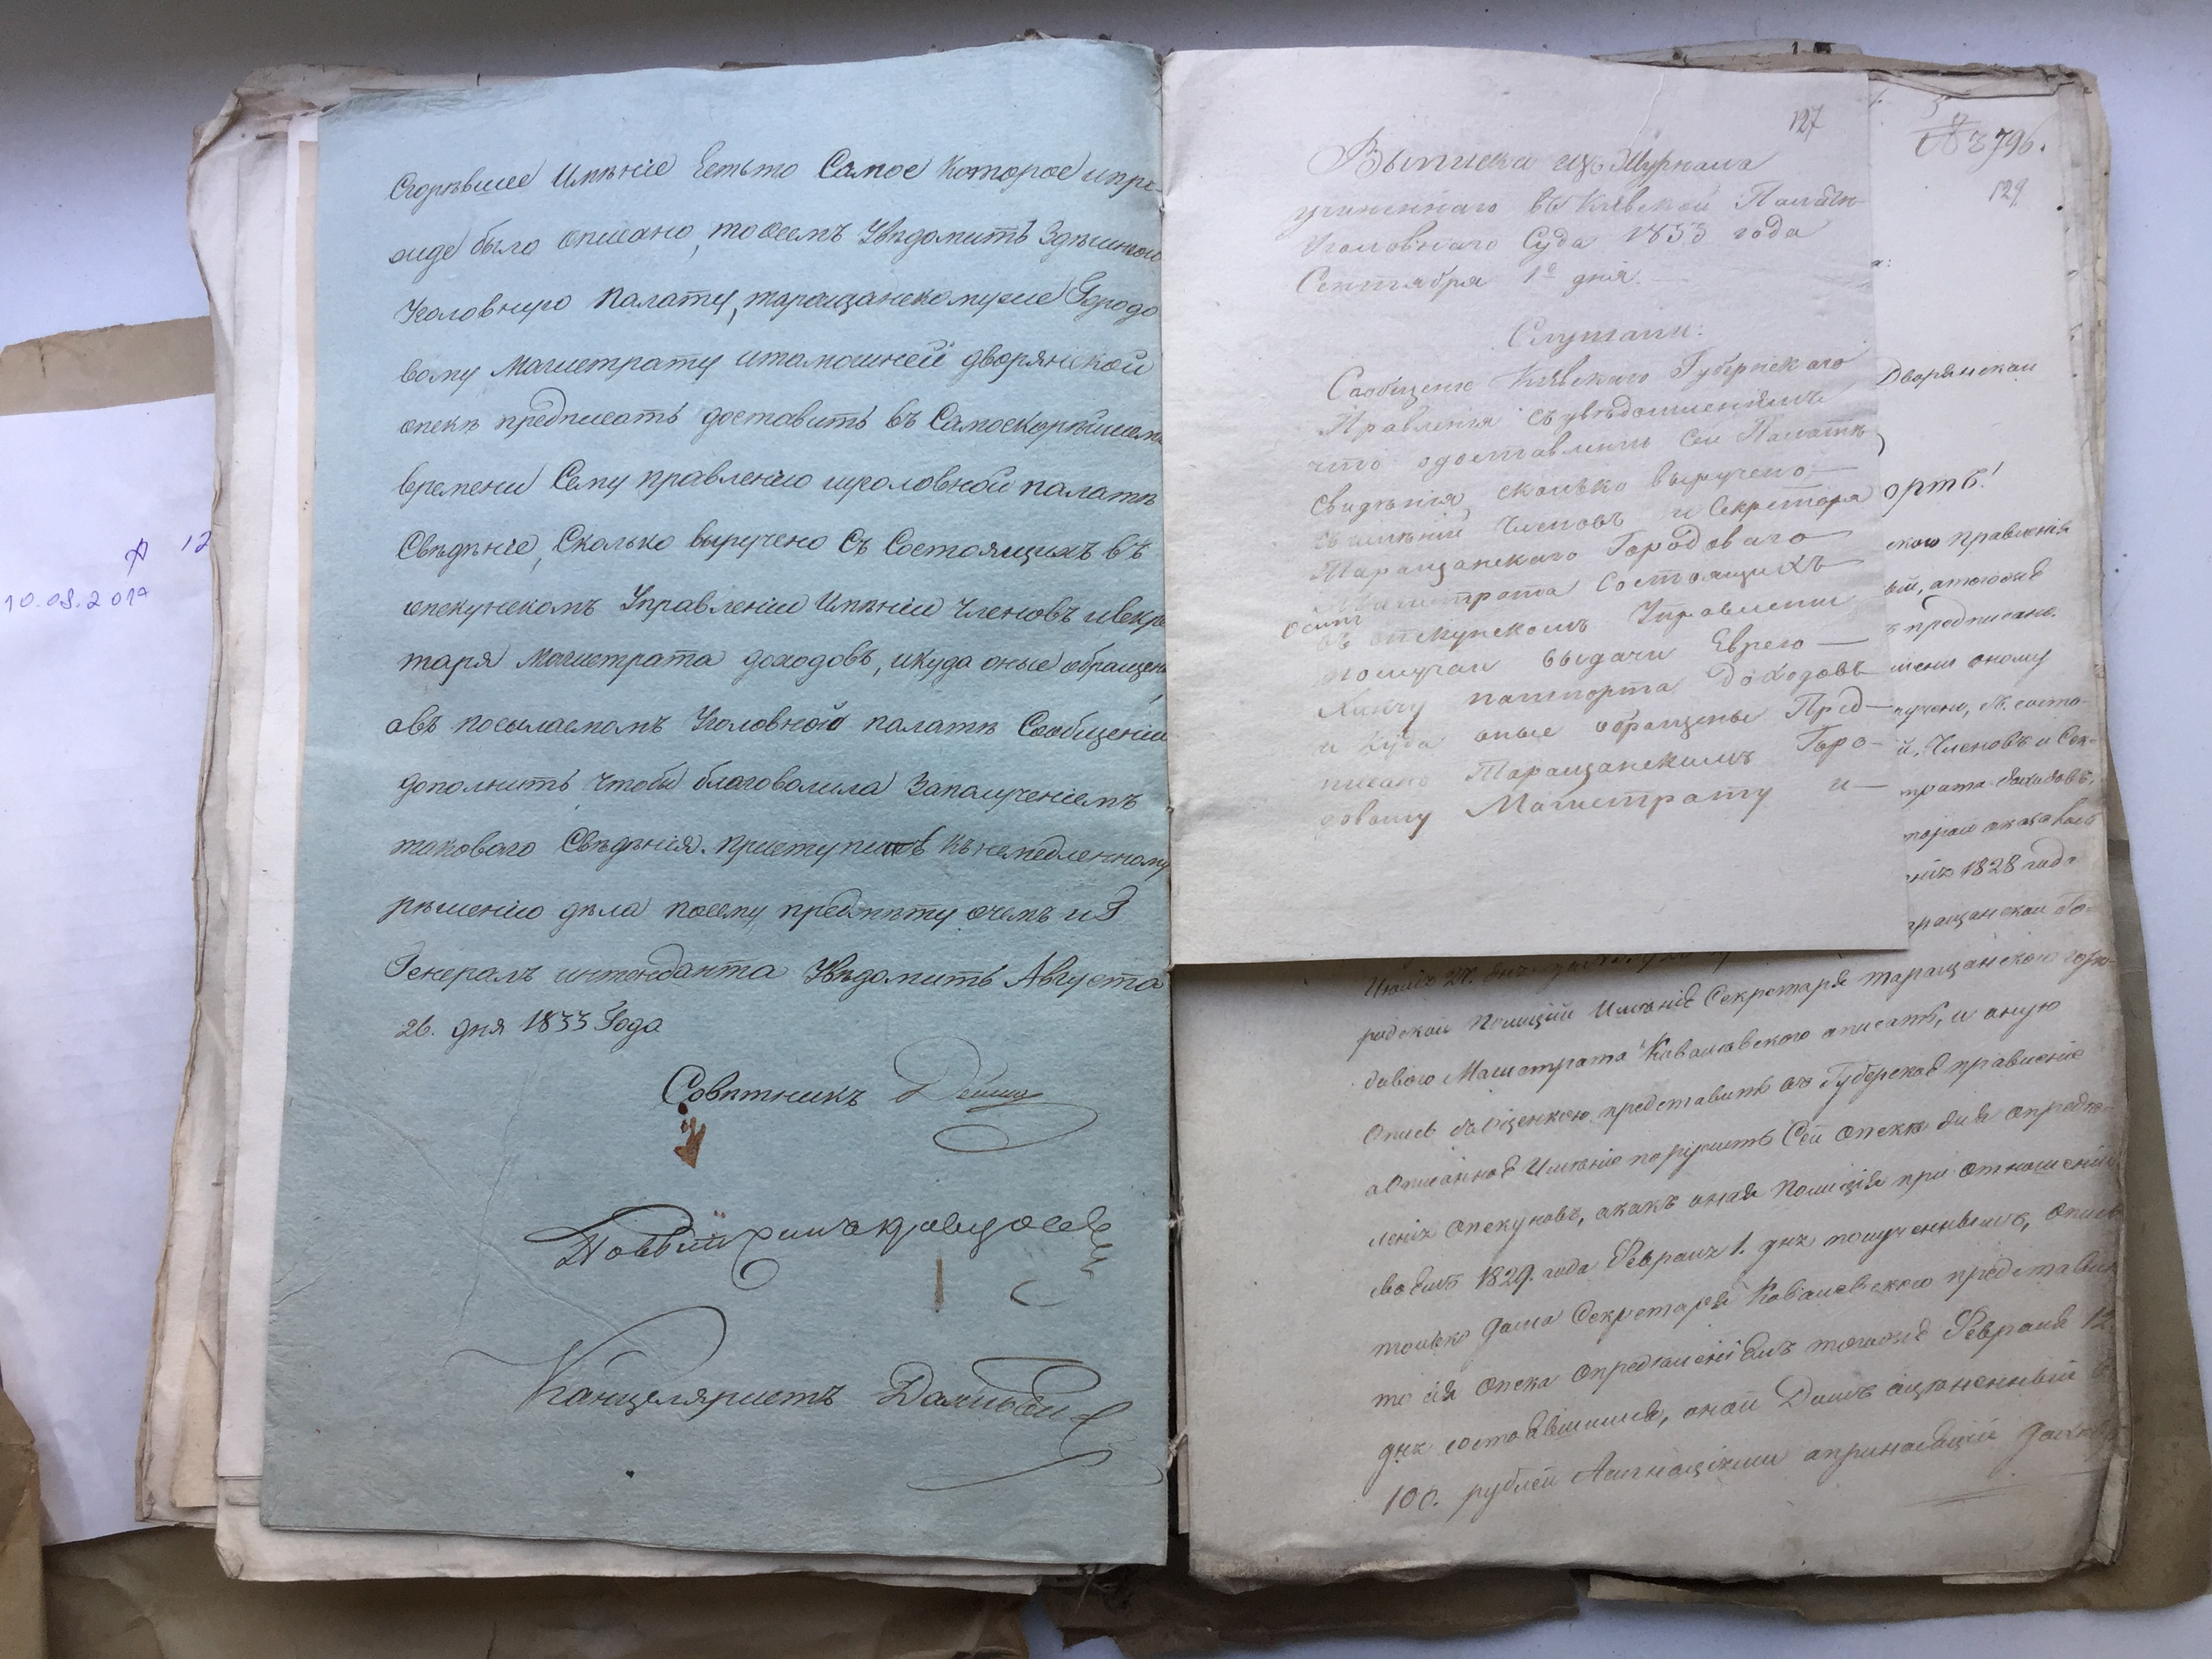 Сгорѣвшее Имѣніе Естьто Самое Которое ипре-
жде было описано, тоосемъ Увѣдомить Здѣшнюю
Уголовную Палату, таращанскомуже Городо
вому Магистрату итамошней дворянской
опекѣ предписать доставить въ Самоскорѣйшемъ
времени Сему правленію иуголовной палатѣ
Свѣдѣніе, Сколько выручено Съ Состоящихъ въ
опекунскомъ Управленіи Имѣніи Членовъ исекре
таря Магистрата доходовъ, икуда оные обращены
авъ посылаемомъ Уголовной палатѣ Сообщеніи
дополнить чтобы благоволила Заполученіемъ
таковаго Свѣдѣнія. приступить Къ немедленному
рѣшенію дѣла посему предмѣту очемъ и Г.
Генералъ интенданта Увѣдомить Августа
26. дня 1833 Года
Совѣтникъ
Канцеляристъ
10.08.2017
12
127
Выписка изъ Журнала
учиненнаго въ Кіевской Палатѣ
Уголовнаго Суда 1833 года
Сентября 1го дня.
Слушали:
Сообщеніе Кіевскаго Губернскаго
Правленія съ увѣдомленіемъ
что одоставленіи Сей Палатѣ
свидѣнія, сколько выручено
съ имѣній Членовъ и Секретаря
Таращанскаго Городоваго
Магистрата Состоящихъ
въ опекунскомъ Управленіи
послучаю выдачи Еврею
паспорта Доходовъ
и куда оные обращены Пред-
писано Таращанскимъ Горо-
довому Магистрату и
№ 3796.
129
Дворянской
ортъ!
ского правленія
ой, атогоже
предписан.
мени оному
лучено, съ состо-
й, Членовъ и Сек-
трата доходовъ,
1828 года
аращанской Го-
Іюля 27. дня
родской Полиціи Имѣніе Секретаря таращанского горо-
доваго Магистрата Ковалевского описать, и оную
Опись съоценкою представить въ Губерское правленіе
аОписанное Имѣніе поручить Сей Опекѣ для опредѣ-
ленія опекуновъ, акакъ оная Полиція при отношеніи
своемъ 1829. года Февраля 1. дня полученнымъ, Опись
только дома Секретаря Ковалевского представила
то сія Опека опредѣленіемъ тогоже Февраля 12.
дня состоявшимся, оной Домъ оцѣненный въ
100. рублей Ассигнаціями априносящій доходъ